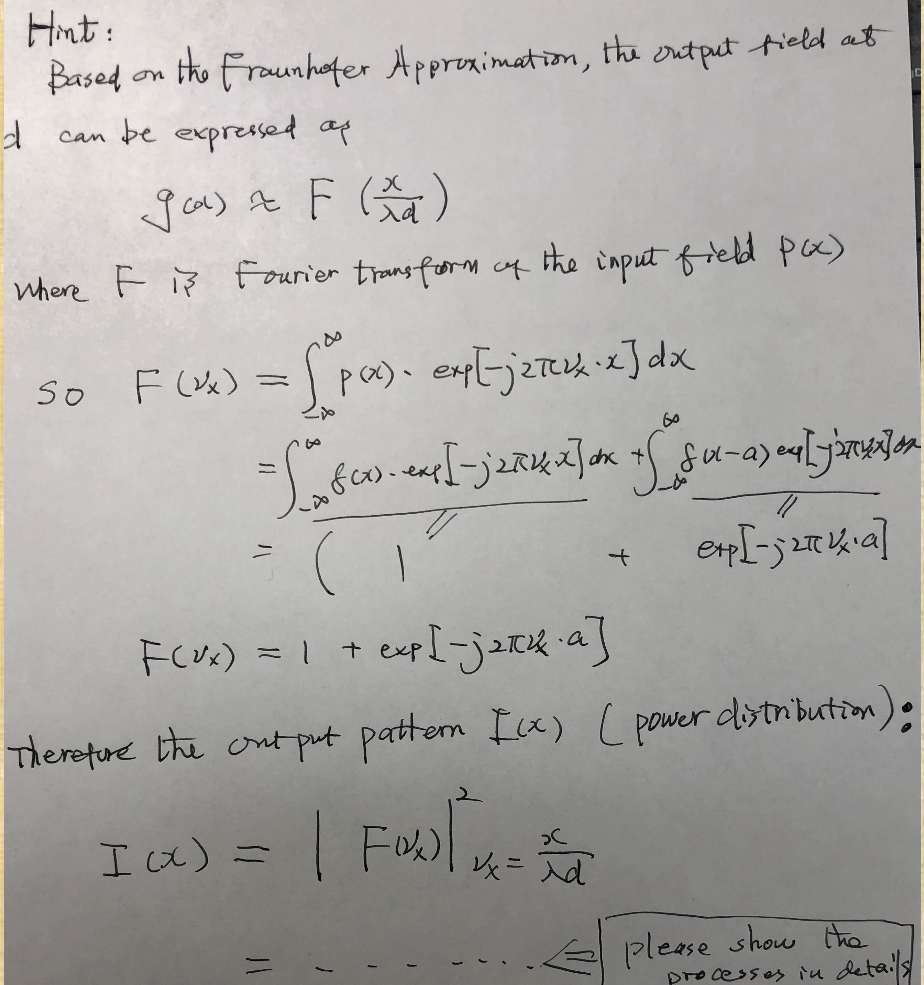 Hint:
Based on the Fraunhofer Approximation, the output field at
d can be expressed as
g(x) ≈ F (x/λd)
where F is Fourier transform of the input field p(x)
so F(νx) = ∫_{-∞}^{∞} p(x) · exp[-j2πνx·x] dx
= ∫_{-∞}^{∞} δ(x) · exp[-j2πνx·x] dx + ∫_{-∞}^{∞} δ(x-a) exp[-j2πνx·x] dx
= ( 1 + exp[-j2πνx·a]
F(νx) = 1 + exp[-j2πνx·a]
Therefore the output pattern I(x) (power distribution):
I(x) = |F(νx)|² νx = x/λd
= - - - - - ... ⇐ please show the
processes in details